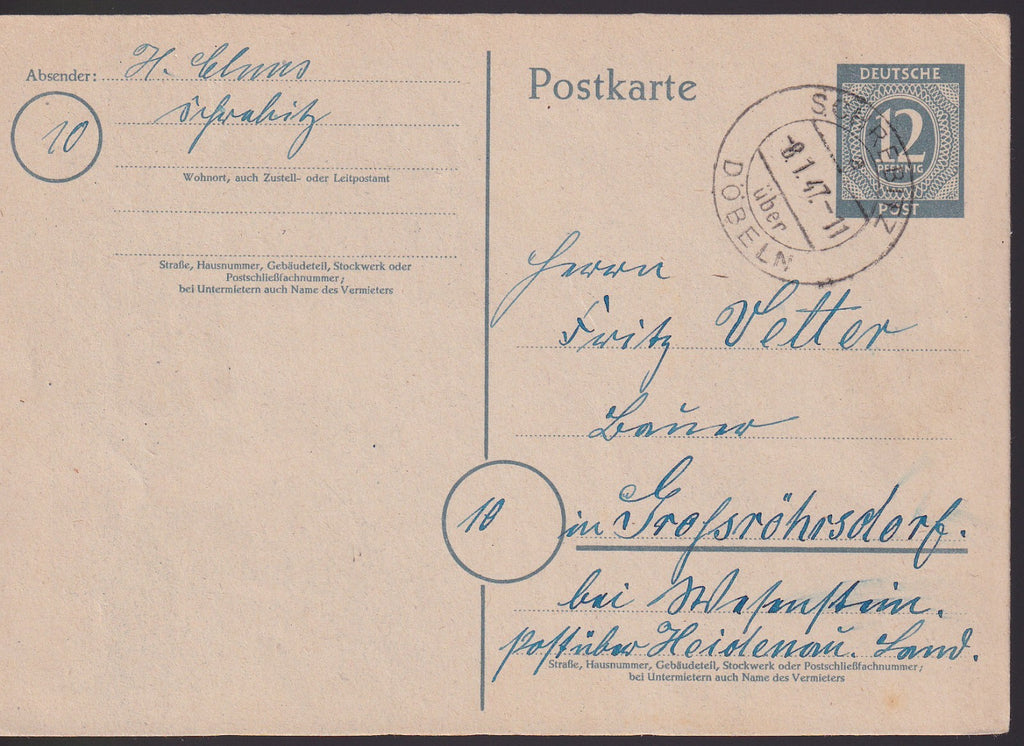 Absender: H. Claus
Schrebitz
10
Wohnort, auch Zustell- oder Leitpostamt
Straße, Hausnummer, Gebäudeteil, Stockwerk oder
Postschließfachnummer;
bei Untermietern auch Name des Vermieters
Postkarte
DEUTSCHE
12
PFENNIG
POST
SCHREBITZ
a
-8.1.47.-11
über
DÖBELN
Herrn
Fritz Vetter
Bauer
10
in Großröhrsdorf.
bei Wesenstein.
post über Heidenau. Land.
Straße, Hausnummer, Gebäudeteil, Stockwerk oder Postschließfachnummer;
bei Untermietern auch Name des Vermieters